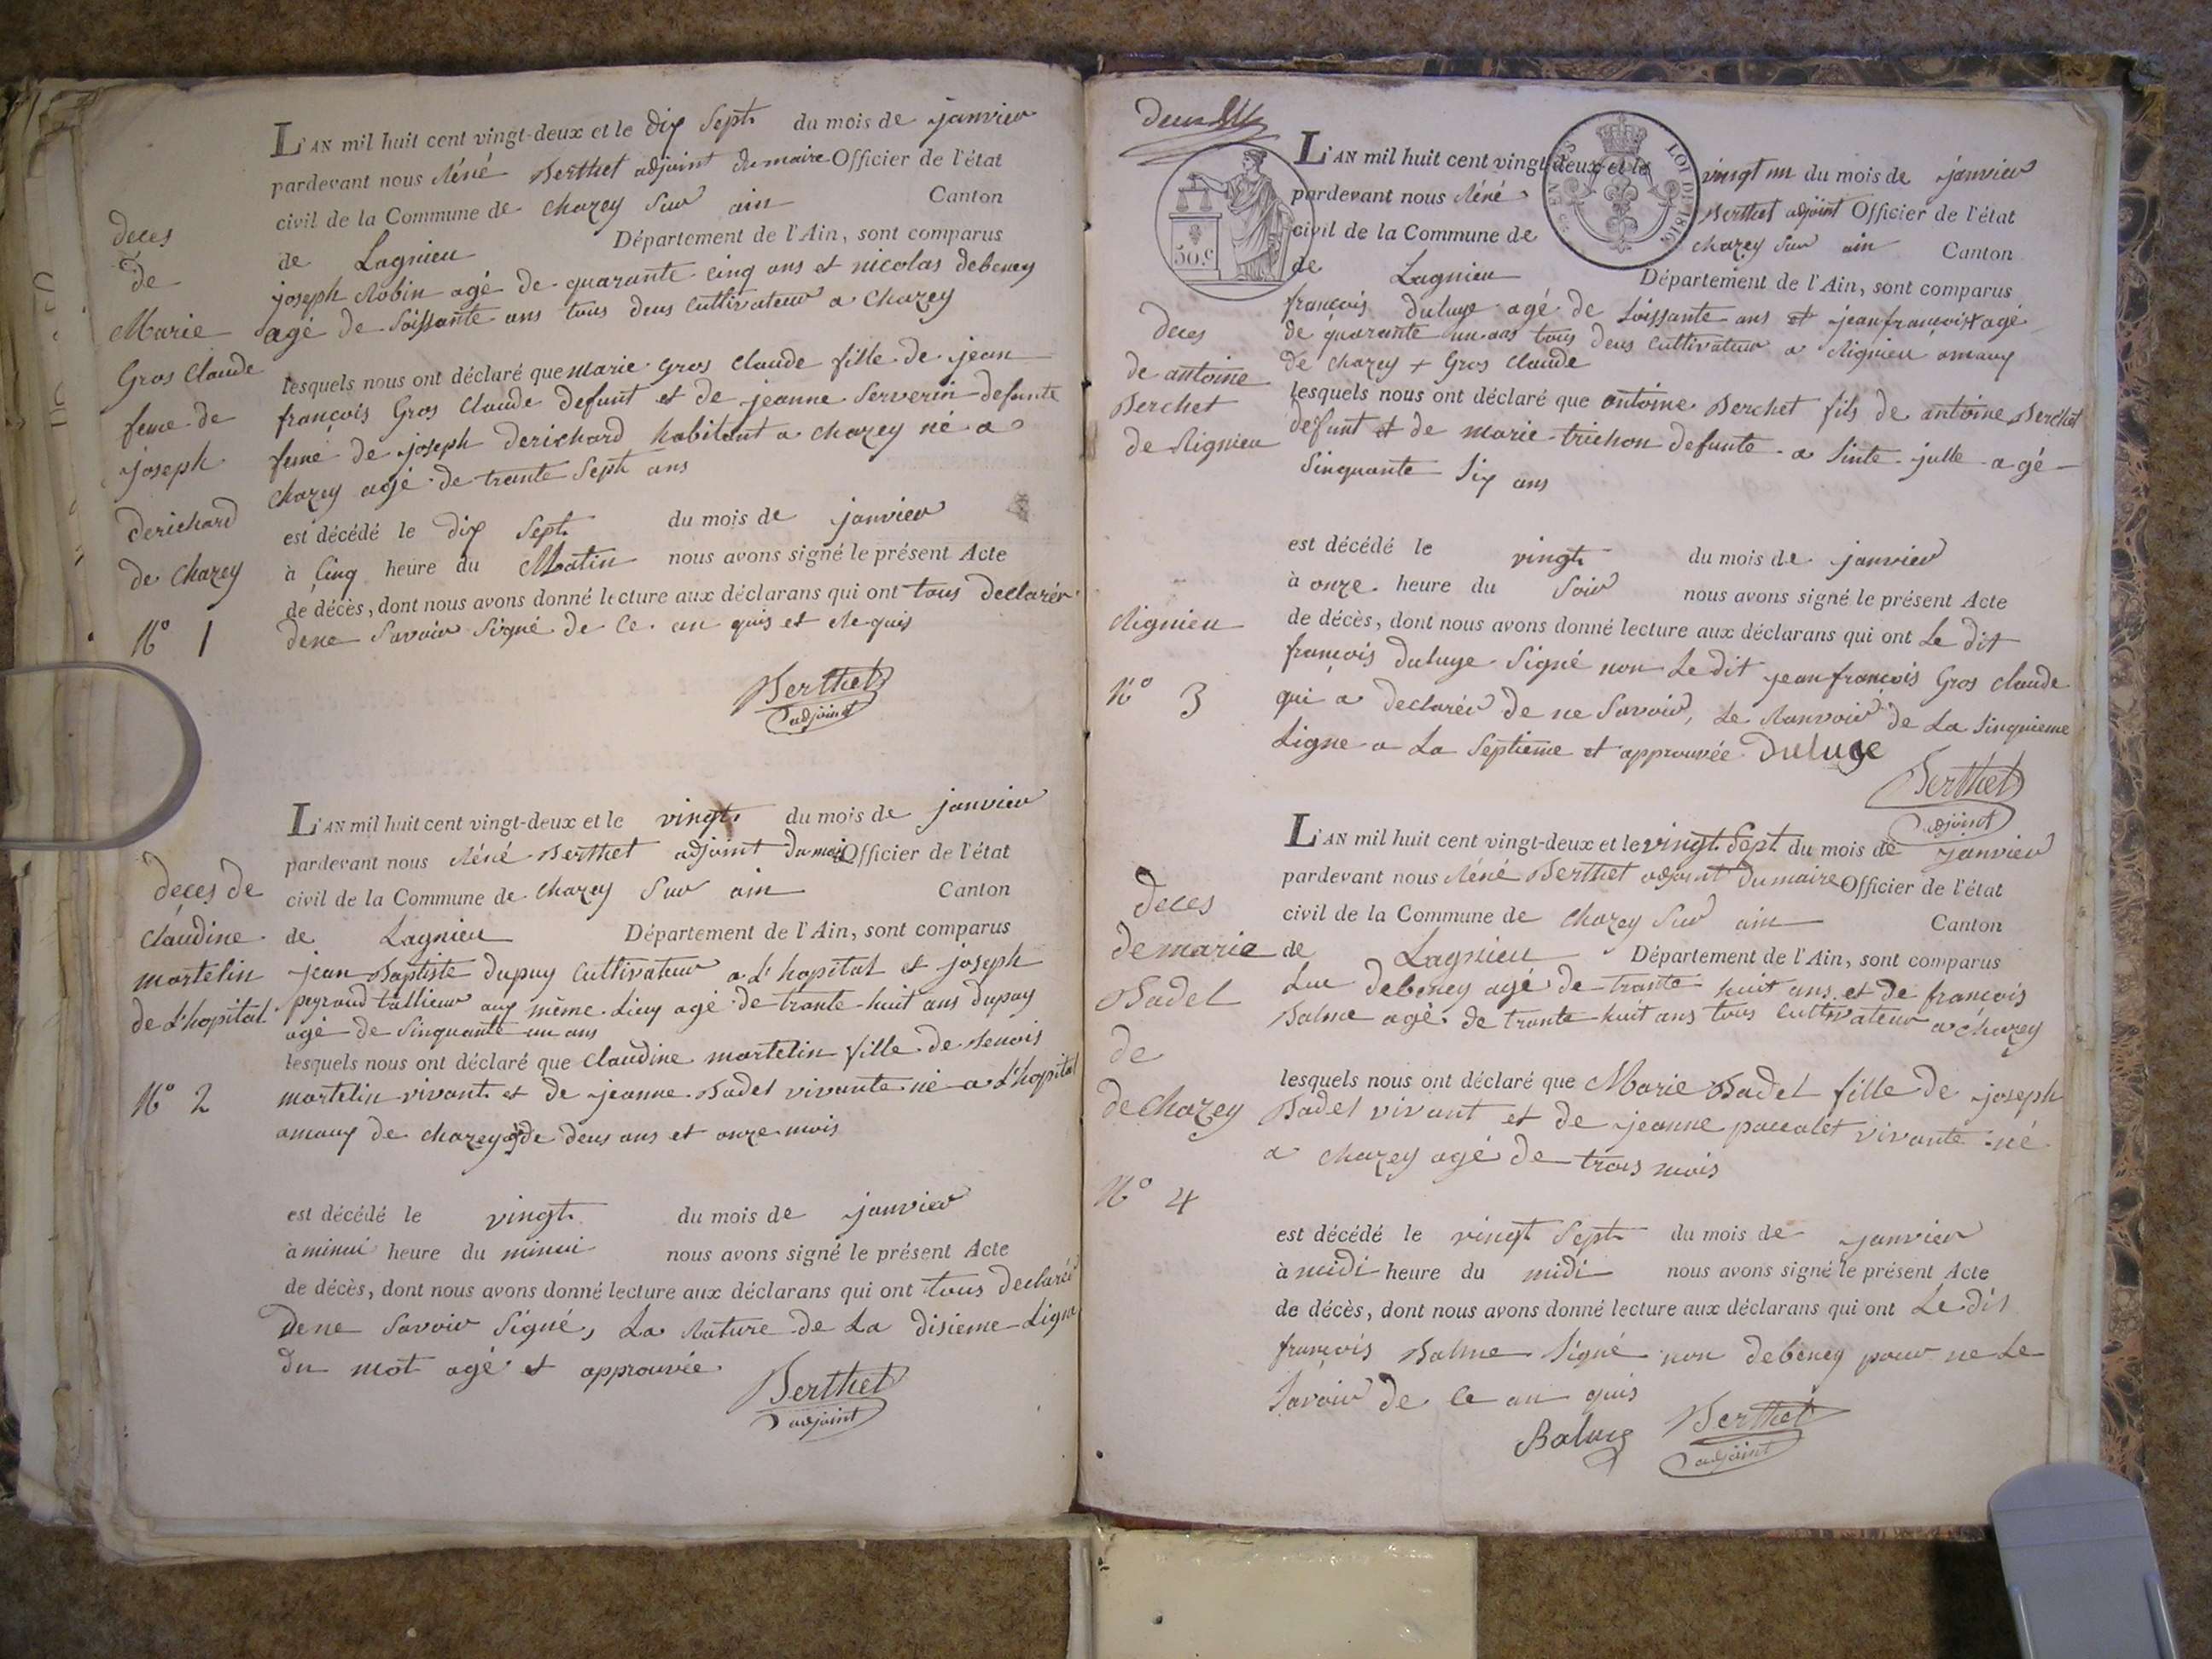 L'AN mil huit cent vingt-deux et le dix Sept du mois de janvier
pardevant nous Réné Berthet adjoint du maire Officier de l'état
civil de la Commune de Chazey Sur ain Canton
de Lagnieu Département de l'Ain, sont comparus
joseph Robin agé de quarante cinq ans et nicolas debeney
agé de Soissante ans tous deus Cultivateur a Chazey
lesquels nous ont déclaré que marie Gros Claude fille de jean
françois Gros Claude defunt et de jeanne Serverin defunte
feme de joseph derichard habitant a chazey né a
Chazey agé de trante Sept ans
est décédé le dix Sept du mois de janvier
à Cinq heure du Matin nous avons signé le présent Acte
de décès, dont nous avons donné lecture aux déclarans qui ont tous declarér
dene Savoir Signé de Ce an quis et Re quis
Berthet
adjoint
deces
de
Marie
Gros Claude
feme de
joseph
derichard
de Chazey
N° 1
L'AN mil huit cent vingt-deux et le vingt du mois de janvier
pardevant nous Réné Berthet adjoint du maire Officier de l'état
civil de la Commune de Chazey Sur ain Canton
de Lagnieu Département de l'Ain, sont comparus
jean Baptiste dupuy Cultivateur a L'hopital et joseph
peyraud tallieur aux même Lieux agé de trante huit ans dupuy
agé de Sinquante un ans
lesquels nous ont déclaré que Claudine martelin fille de Benois
martelin vivant et de jeanne Badel vivante né a L'hopital
amaux de chazey agé de deus ans et onze mois
est décédé le vingt du mois de janvier
à minui heure du minui nous avons signé le présent Acte
de décès, dont nous avons donné lecture aux déclarans qui ont tous declaréé
dene Savoir Signé, La Rature de La disieme Ligne
du mot agé et approuvée
Berthet
adjoint
deces de
Claudine
martelin
de L'hopital
N° 2
deus
50.c
LOI DE 1816
L'AN mil huit cent vingt-deux et le vingt un du mois de janvier
pardevant nous Réné Berthet adjoint Officier de l'état
civil de la Commune de chazey Sur ain Canton
de Lagnieu Département de l'Ain, sont comparus
françois duluge agé de Soissante ans et jean françois + agé
de quarante un ans tous deus Cultivateur a Rignieu amaux
de Chazey + Gros Claude
lesquels nous ont déclaré que antoine Berchet fils de antoine Berchet
defunt et de marie trichon defunte a Sinte julle agé
Sinquante Six ans
est décédé le vingt du mois de janvier
à onze heure du Soir nous avons signé le présent Acte
de décès, dont nous avons donné lecture aux déclarans qui ont Le dit
françois duluge Signé non Le dit jean françois Gros Claude
qui a declaréé de ne Savoir, Le Ranvoir de La Sinquieme
Ligne a La Septieme et approuvée Duluge
Berthet
adjoint
deces
de antoine
Berchet
de Rignieu
Rignieu
N° 3
L'AN mil huit cent vingt-deux et le vingt Sept du mois de janvier
pardevant nous Réné Berthet adjoint du maire Officier de l'état
civil de la Commune de Chazey Sur ain Canton
de Lagnieu Département de l'Ain, sont comparus
Luc debeney agé de trante huit ans et de françois
Balme agé de trante huit ans tous Cultivateur a Chazey
lesquels nous ont déclaré que Marie Badel fille de joseph
Badel vivant et de jeanne paccalet vivante né
a Chazey agé de trois mois
est décédé le vingt Sept du mois de janvier
à midi heure du midi nous avons signé le présent Acte
de décès, dont nous avons donné lecture aux déclarans qui ont Le dit
françois Balme Signé non debeney pour ne Le
Savoir de Ce an quis
Balme Berthet
adjoint
deces
de marie
Badel
de
de Chazey
N° 4